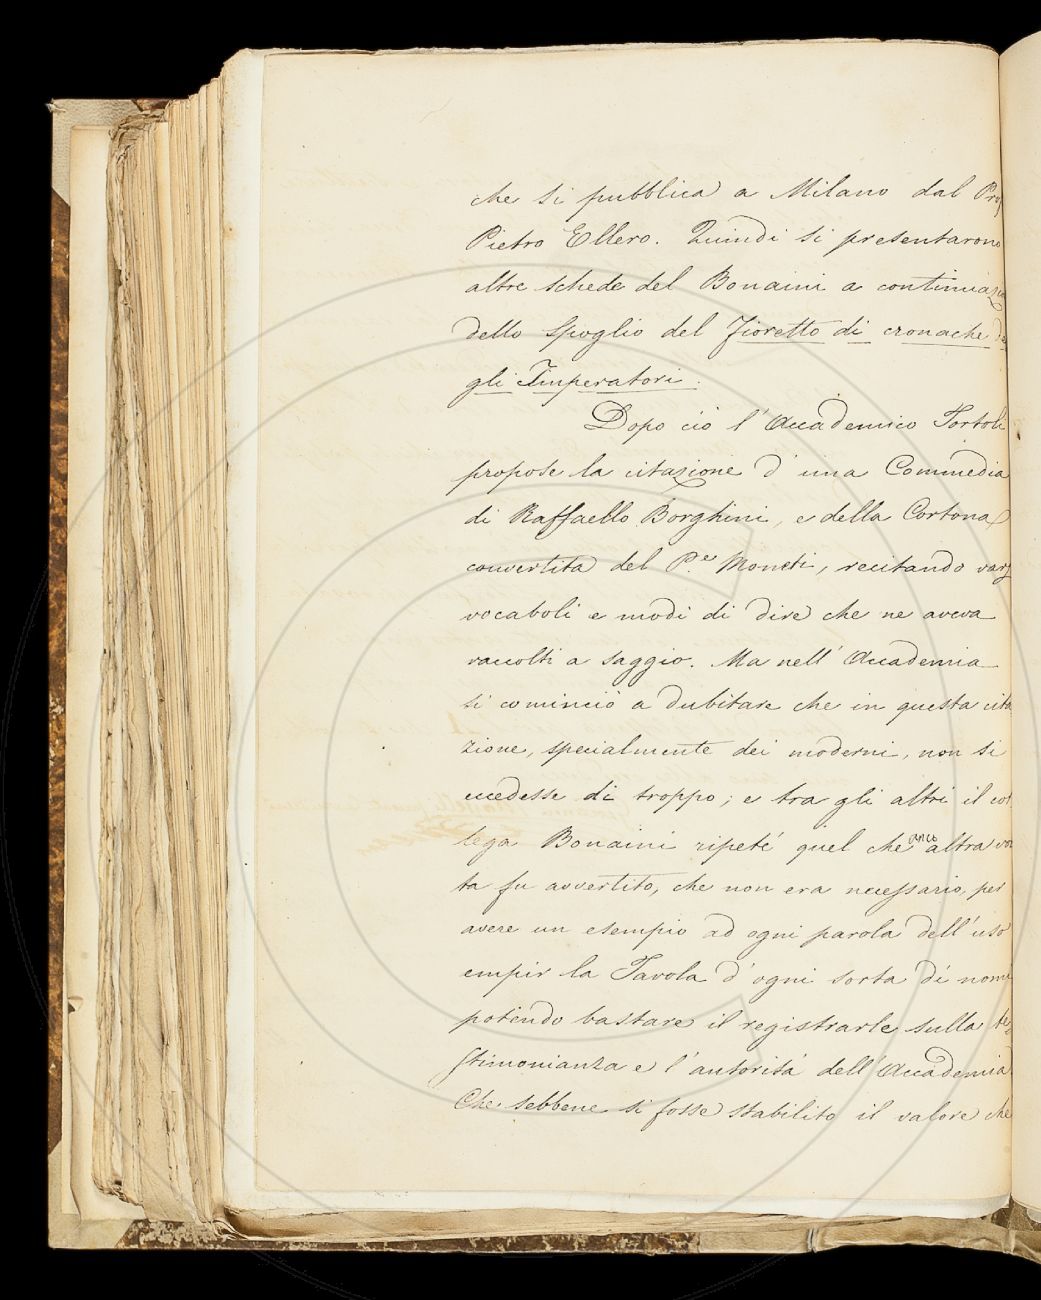 che si pubblica a Milano dal Prof
Pietro Ellero. Quindi si presentarono
altre schede del Bonaini a continuazio
dello spoglio del Fioretto di cronache de
gli Imperatori.
Dopo ciò l'Accademico Tortoli
propose la citazione d'una Commedia
di Raffaello Borghini, e della Cortona
convertita del P.e Moneti, recitando varj
vocaboli e modi di dire che ne aveva
raccolti a saggio. Ma nell'Accademia
si cominciò a dubitare che in questa cita
zione, specialmente dei moderni, non si
eccedesse di troppo; e tra gli altri il col
lega Bonaini ripeté quel che anco altra vol
ta fu avvertito, che non era necessario, per
avere un esempio ad ogni parola dell'uso
empir la Tavola d'ogni sorta di nomi
potendo bastare il registrarle sulla te
stimonianza e l'autorità dell'Accademia
Che sebbene si fosse stabilito il valore che